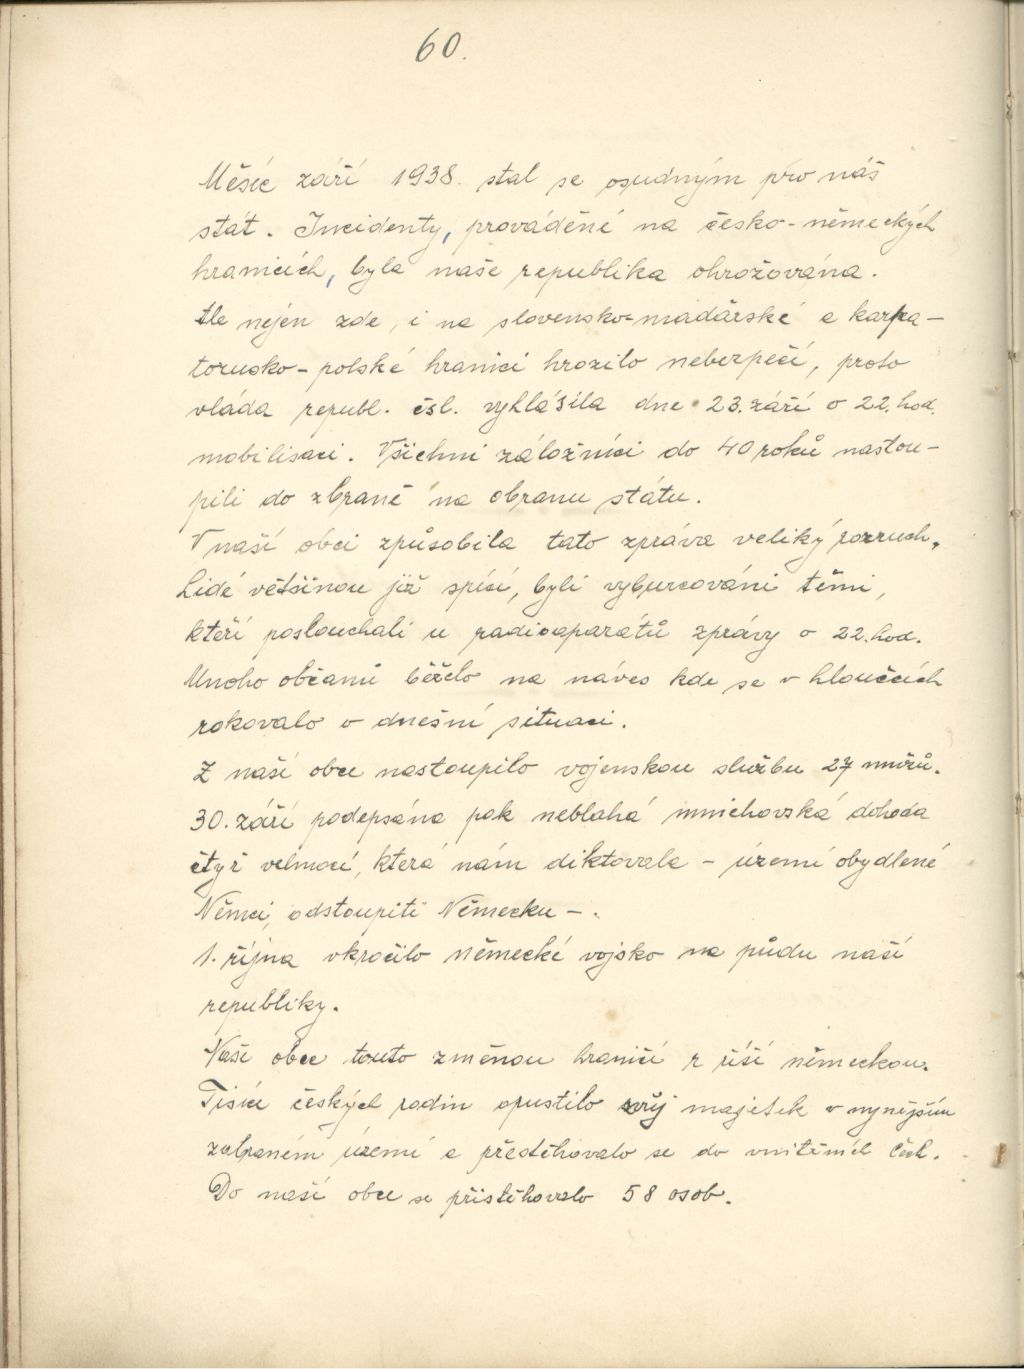 60.
Měsíc září 1938. stal se osudným pro náš
stát. Incidenty, prováděné na česko-německých
hranicích, byla naše republika ohrožována.
Ale nejen zde, i na slovensko-maďarské a karpa-
torusko-polské hranici hrozilo nebezpečí, proto
vláda republ. čsl. vyhlásila dne 23. září o 22. hod.
mobilisaci. Všichni záložníci do 40 roků nastou-
pili do zbraně na obranu státu.
V naší obci způsobila tato zpráva veliký rozruch.
Lidé většinou již spící, byli vyburcováni těmi,
kteří poslouchali u radioaparátů zprávy o 22. hod.
Mnoho občanů běželo na náves kde se v hloučcích
rokovalo o dnešní situaci.
Z naší obce nastoupilo vojenskou službu 27 mužů.
30. září podepsána pak neblahá mnichovská dohoda
čtyř velmocí, která nám diktovala - území obydlené
Němci, odstoupiti Německu - .
1. října vkročilo německé vojsko na půdu naší
republiky.
Naše obce touto změnou hraničí z říší německou.
Tisíce českých rodin opustilo svůj majetek v nynějším
zabraném území a přestěhovalo se do vnitřních Čech.
Do naší obce se přistěhovalo 58 osob.